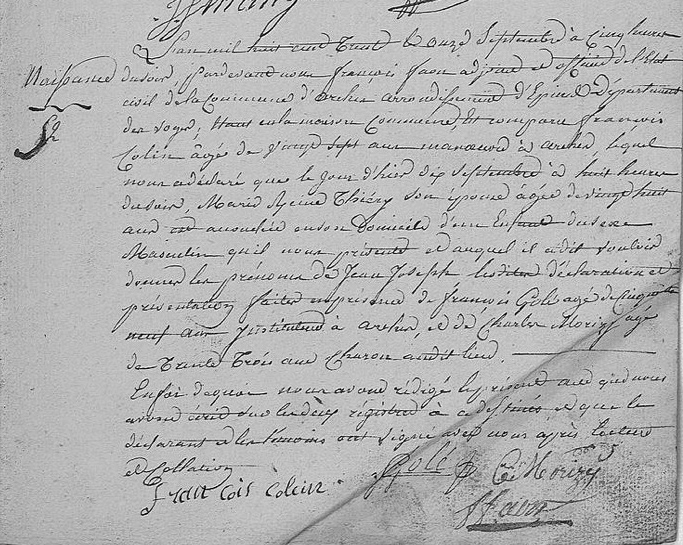 L'an mil huit cent Trente le onze Septembre à Cinq heures
Naissance du soir, pardevant nous françois faon adjoint et officier de l'Etat
civil de la Commune d'arches arrondissement d'Epinal Département
des Vosges, Etant en la maison Commune, Est comparu françois
Colin âgé de vingt sept ans manoeuvre à arches, lequel
nous a déclaré que le jour d'hier dix septembre à huit heures
du soir, Marie Reine Thiéry son épouse âgée de vingt huit
ans est accouchée en son Domicile d'un Enfant du sexe
Masculin qu'il nous présente et auquel il a dit vouloir
donner les prénoms de Jean Joseph les dites déclaration et
présentation faites en présence de françois Golé agé de Cinquante
neuf ans Instituteur à arches, et de Charles Morizy agé
de Trente Trois ans Charon audit lieu.
En foi de quoi nous avons rédigé le présent acte que nous
avons écrit sur les deux registres à ce destinés et que le
déclarant et les témoins ont signé avec nous après lecture
et Collation
fran cois colein Golé C. Morizy
f. faon